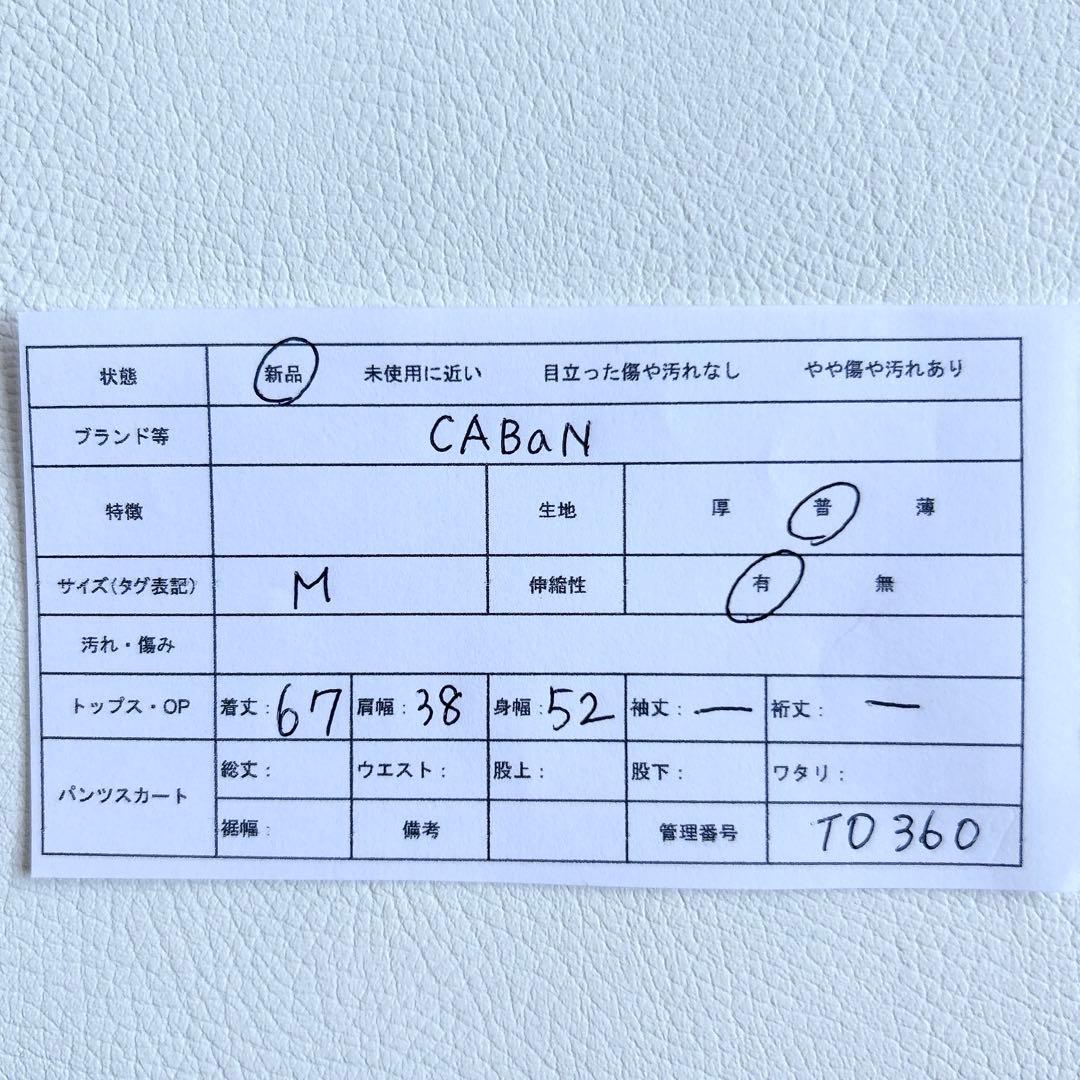 状態 新品 未使用に近い 目立った傷や汚れなし やや傷や汚れあり
ブランド等 CABaN
特徴 生地 厚 普 薄
サイズ(タグ表記) M 伸縮性 有 無
汚れ・傷み
トップス・OP 着丈:67 肩幅:38 身幅:52 袖丈:ー 裄丈:ー
パンツスカート 総丈: ウエスト: 股上: 股下: ワタリ:
裾幅: 備考 管理番号 TO360